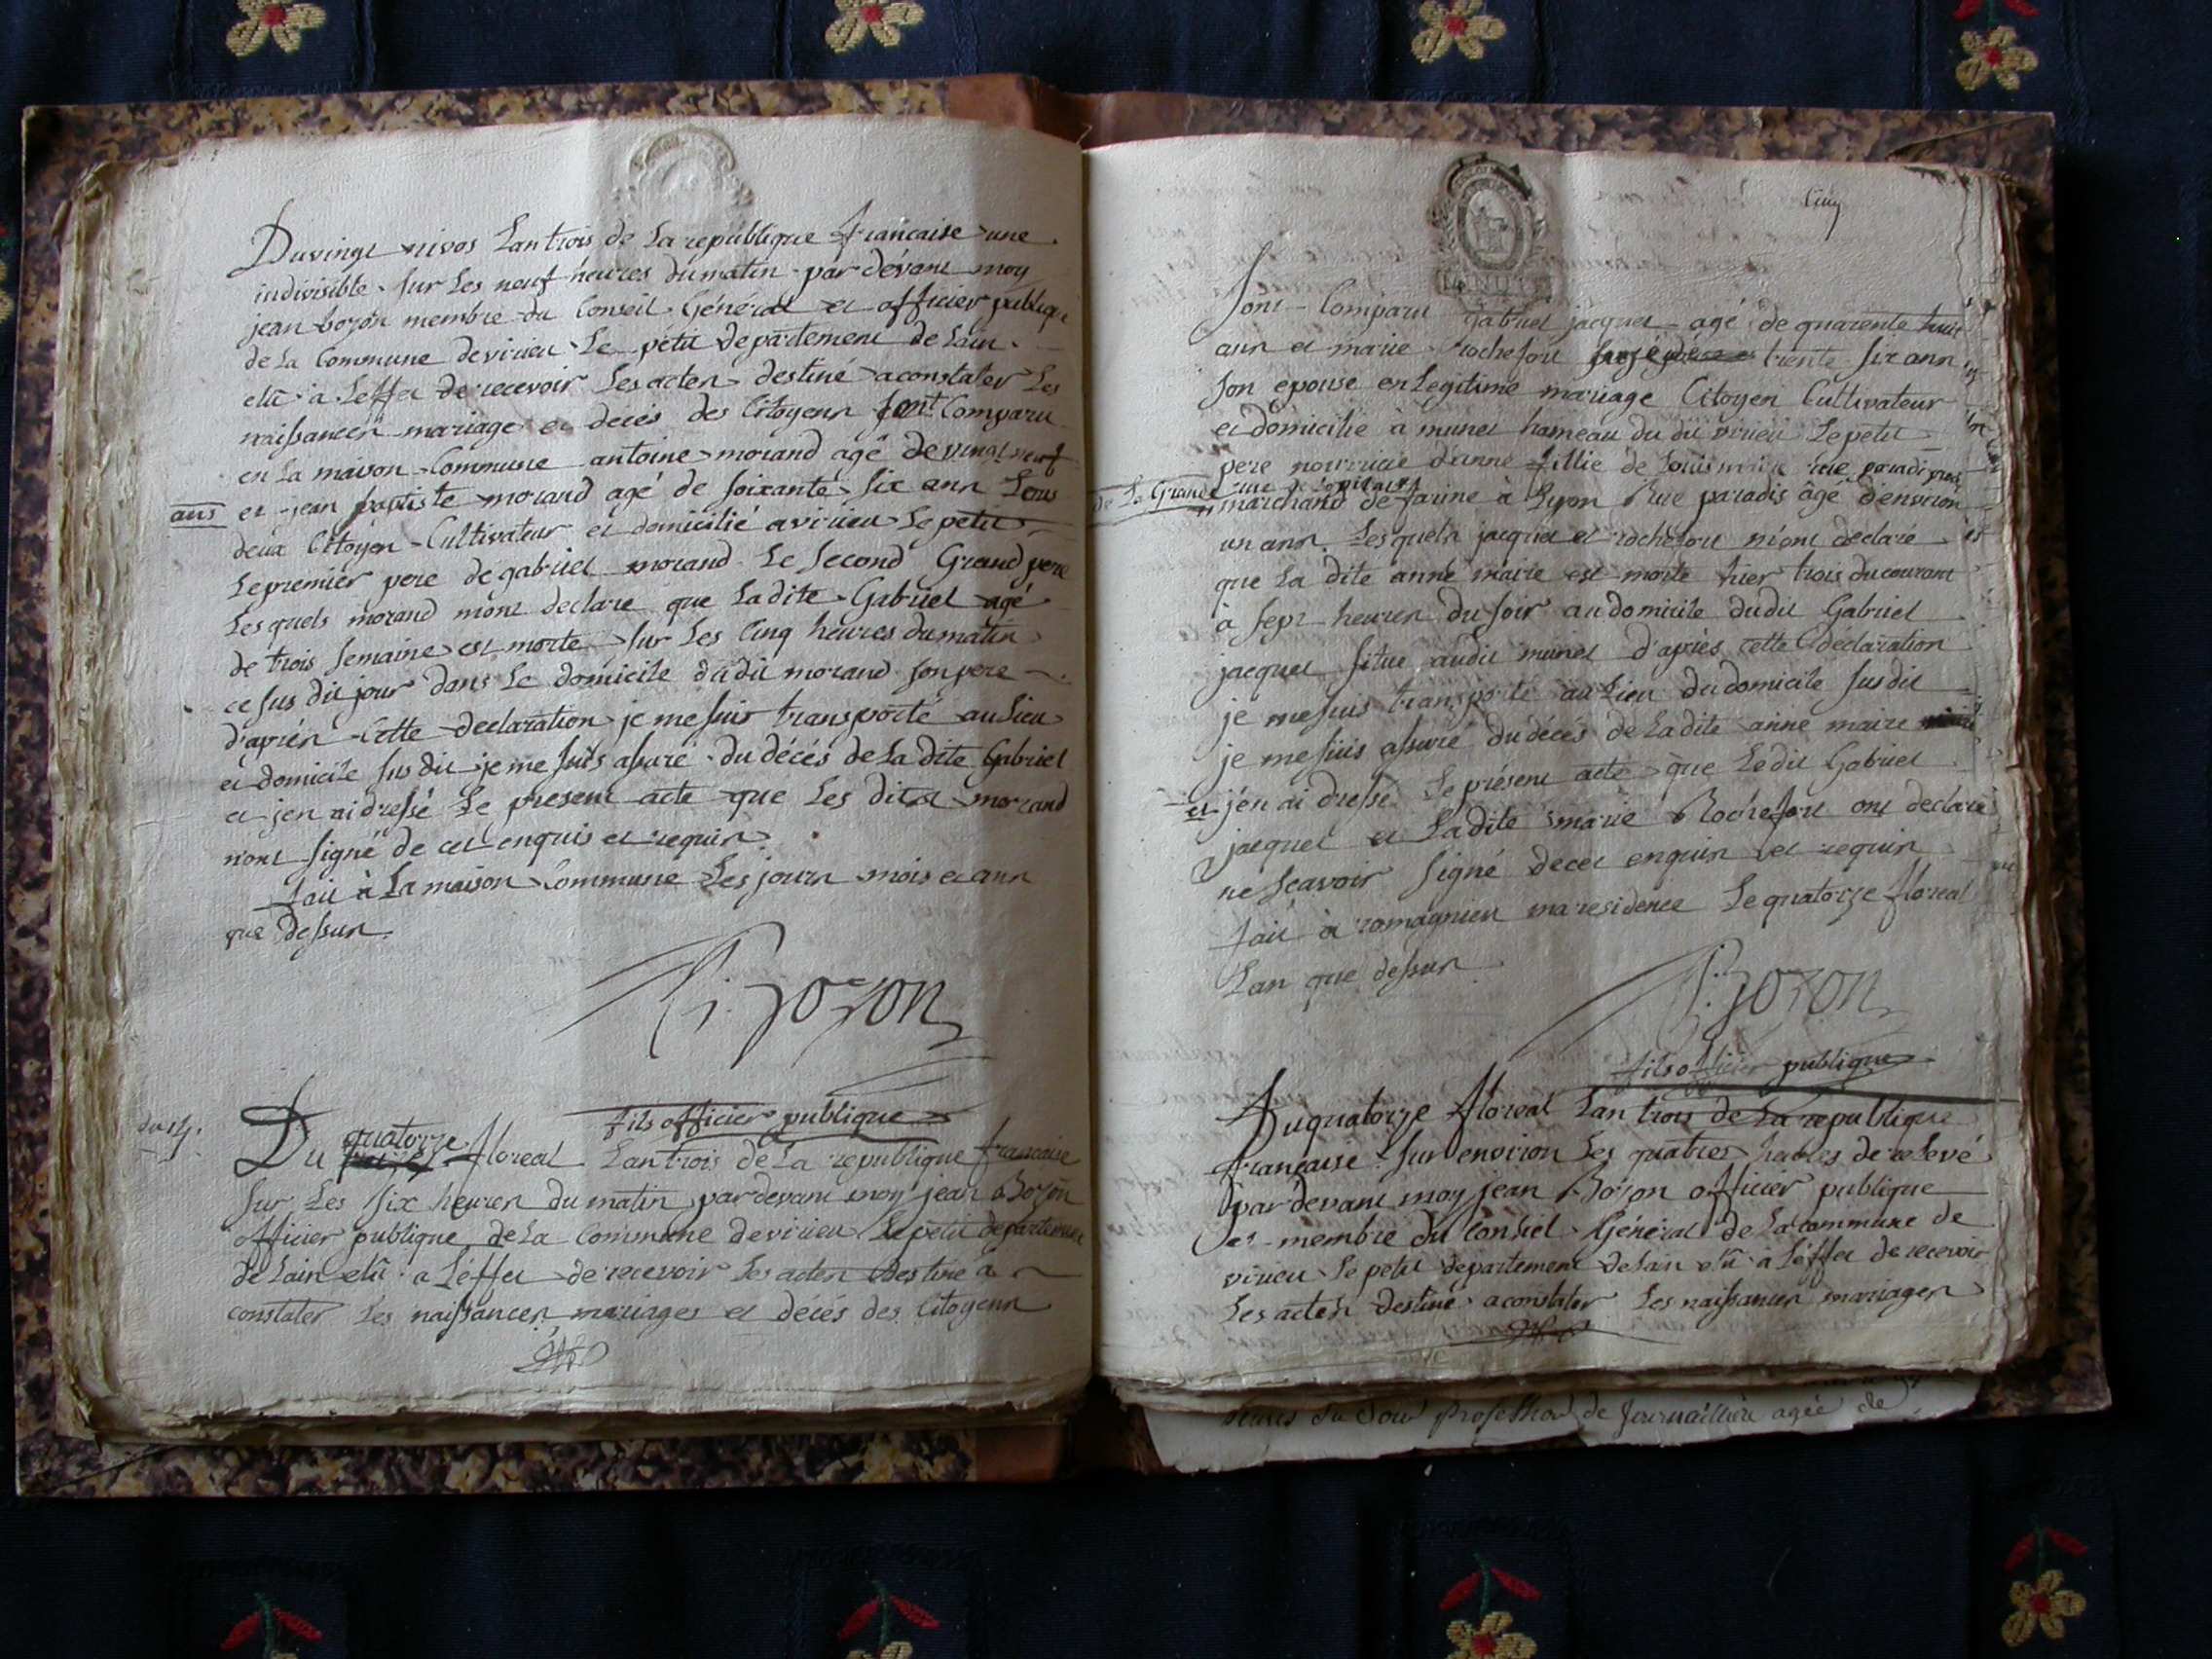 Du vingt nivos Lan trois de La republique francaise une
indivisible sur Les neuf heures du matin par dévant moy
jean bozon membre du Conseil Général et officier publique
de La Commune de virieu Le petit departement de Lain
elû à Leffet de recevoir Les acten destiné a constater Les
naissancen mariage et decés des Citoyenn sont Comparu
en La maison Commune antoine morand agé de vingt neuf
ans
et jean baptiste morand agé de soixante six ann Tous
deux Citoyen Cultivateur et domicilié a virieu Le petit
Le premier pere de gabriel morand Le second Grand pere
Les quels morand mont declare que Ladite Gabriel agé
de trois semaine est morte sur Les Cinq heures du matin
ce sus dit jour dans Le domicile dudit morand son pere
d'aprén Cette declaration je me suis transporté au Lieu
et domicile sus dit je me suis assuré du décés de La dite Gabriel
et jen ai dressé Le present acte que Les dites morand
n'ont signé de cet enquis et requin
fait à La maison Commune Les journ mois et ann
que dessun
J: Bozon
fils officier publique
du 14.
Du quatorze floreal Lan trois de La republique francaise
sur Les six heuren du matin pardevant moy jean Bozon
officier publique de La Commune de virieu Le petit departement
de Lain elû a Léffet de recevoir Les acten destiné a
constater Les naissancen mariages et décés des Citoyenn
Cinq
sont Comparu Gabriel jacquet agé de quarente huit
ann et marie rochefort trente six ann
son epouse en Legitime mariage Citoyen Cultivateur
et domicilié à munet hameau du dit virieu Le petit
pere nourricié danne fillie de Louis rue paradi
de La Grande rue de L'opitaux
marchand de farine à Lyon Rue paradis âgé d'environ
un ann. Les queln jacquet et rochefort m'ont declaré
que La dite anne marie est morte hier trois du courant
à sept heuren du soir au domicile dudit Gabriel
jacquet situe audit munet d'après cette declaration
je me suis transporté au Lieu du domicile sus dit
je me suis assuré du décés de La dite anne marie
et j'en ai dressé Le présent acte que Le dit Gabriel
jacquet et La dite marie Rochefort ont declaré
ne sçavoir signé de cet enquin et requin
fait à romagnieu ma residence Le quatorze floreal
Lan que dessun
J: Bozon
fils officier publique
Du quatorze floreal Lan trois de La republique
francaise sur environ Les quatres heures de relevé
par devant moy jean Bozon officier publique
et membre du Consiel Général de La commune de
virieu Le petit departement de Lain elû à Léffet de recevoir
Les acten destiné a constater Les naissancen mariagen
heures du soir profession de journaillière agée de